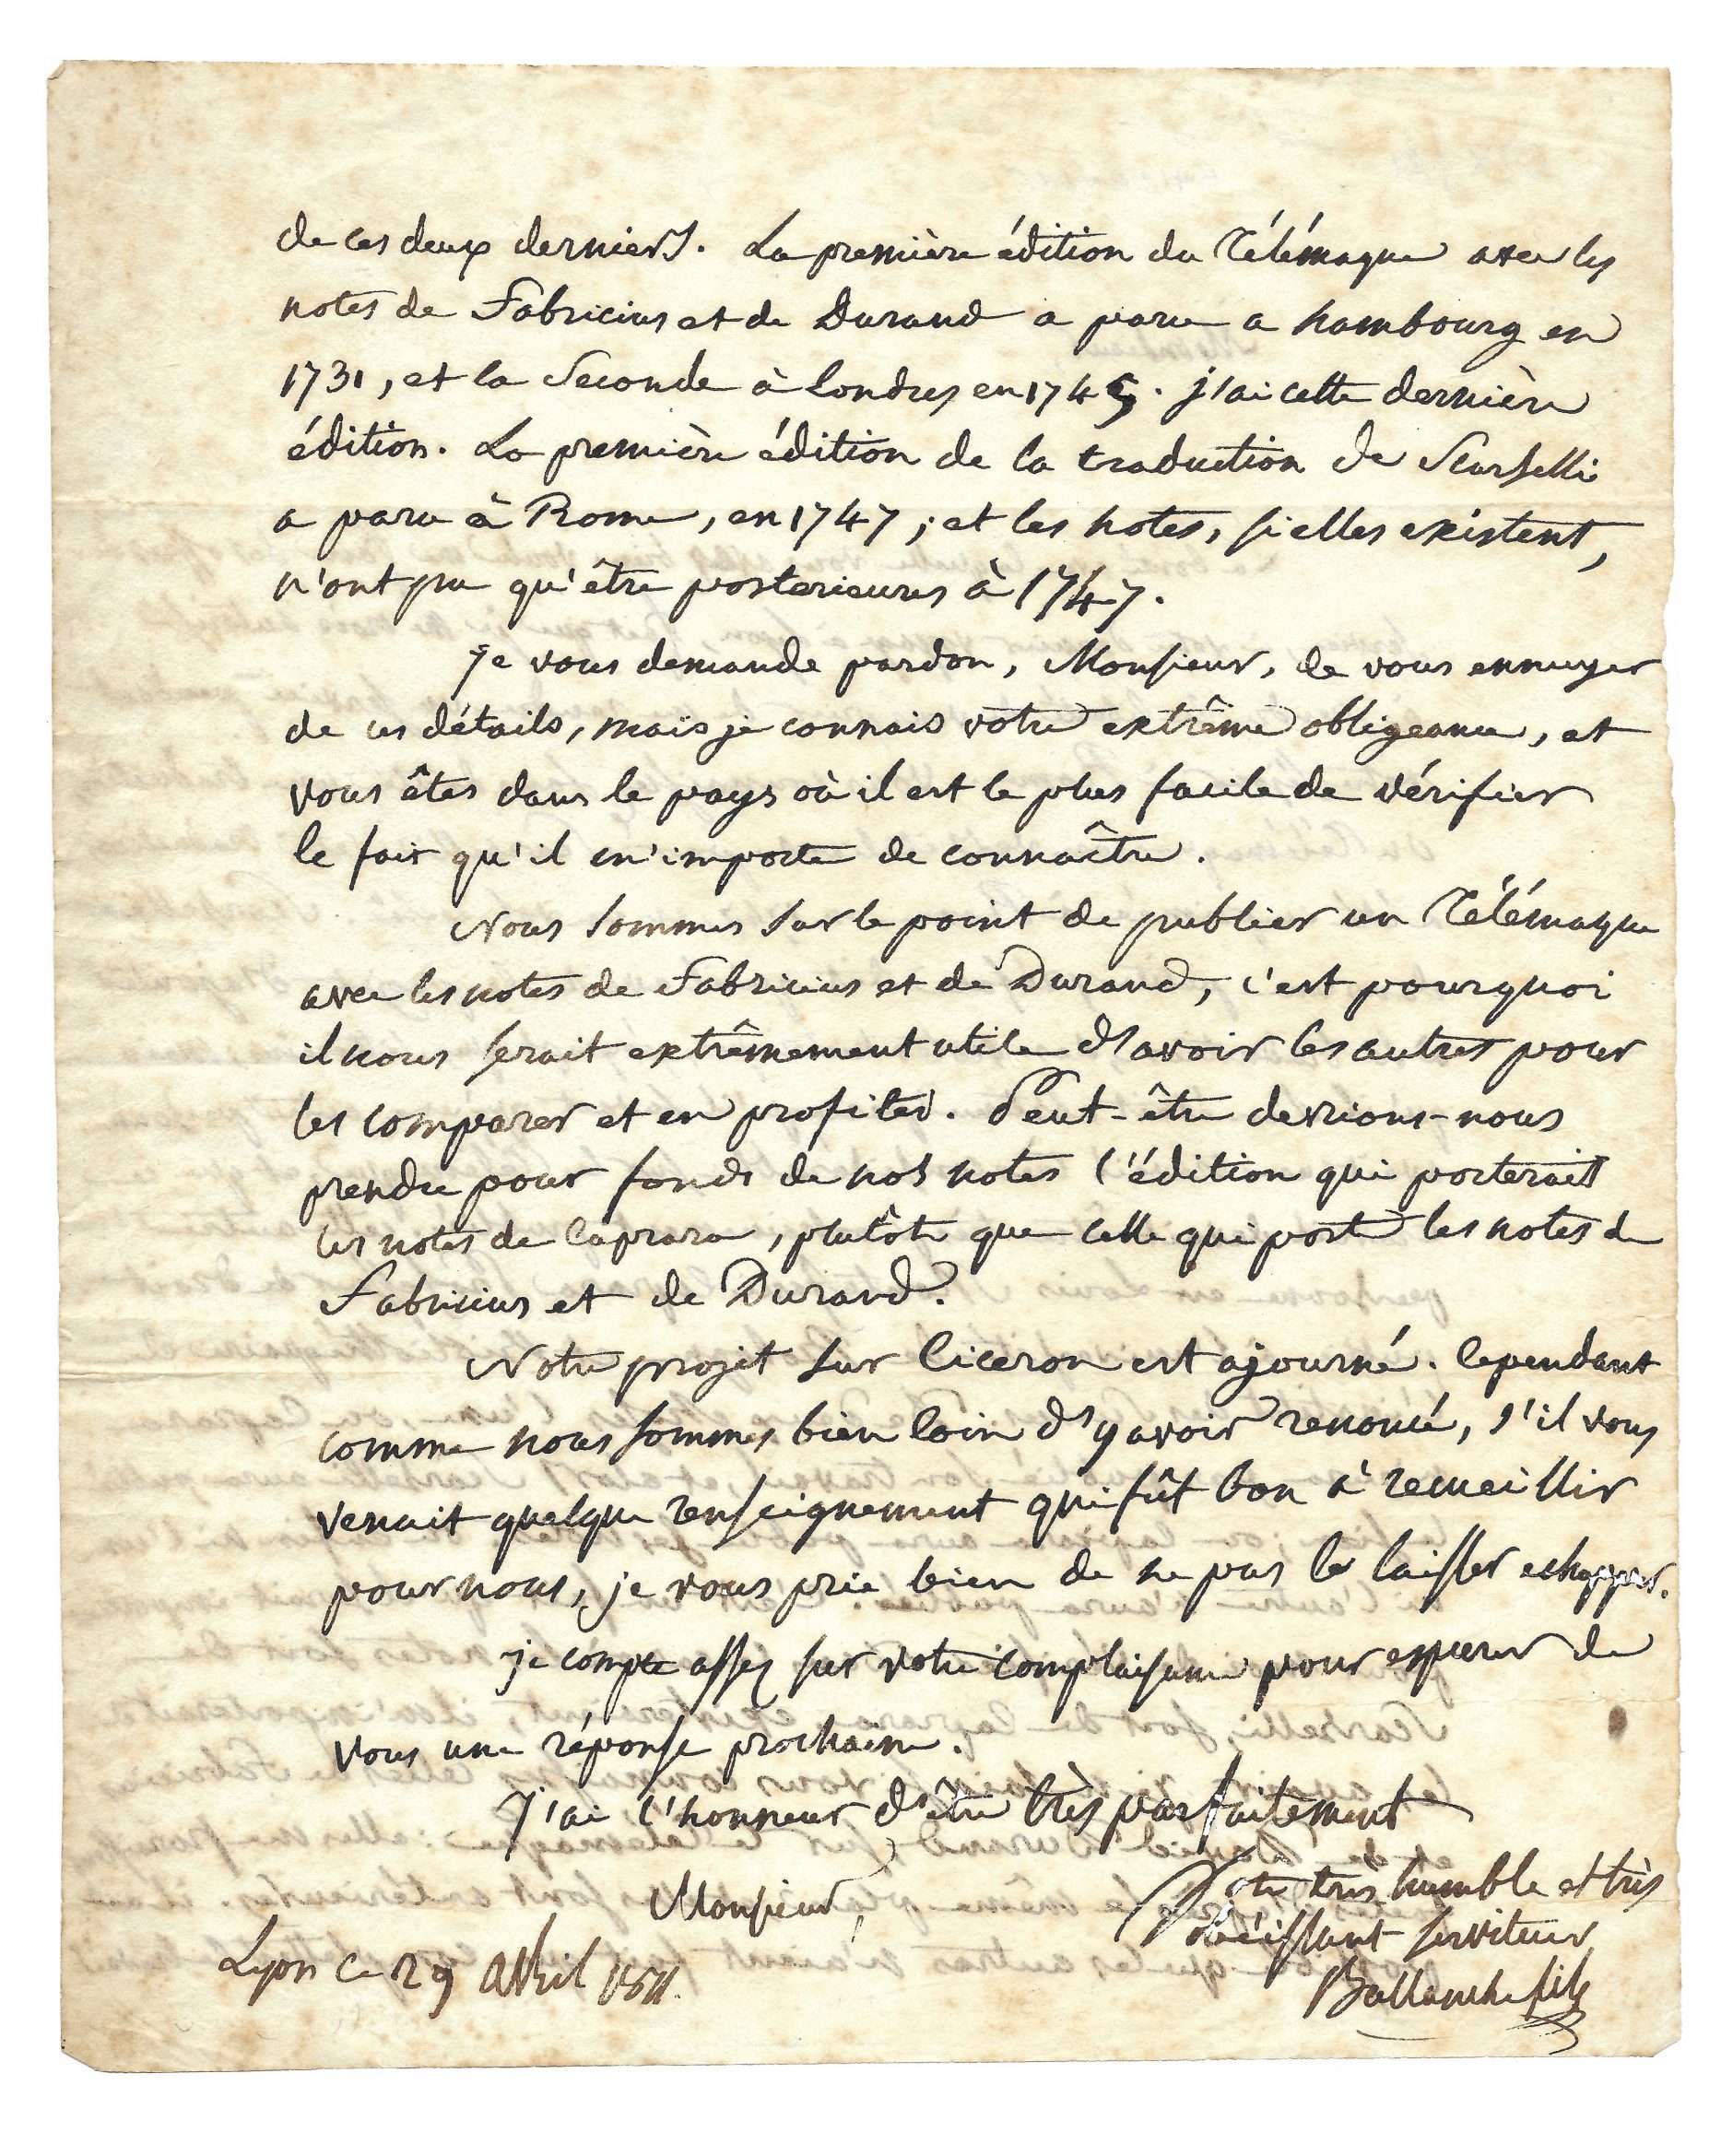 de ces deux derniers. La première édition du Télémaque avec les
notes de Fabricius et de Durand a paru a hambourg en
1731, et la Seconde à Londres en 1745. j'ai cette dernière
édition. La première édition de la traduction de Scarselli
a paru à Rome, en 1747 ; et les notes, si elles existent,
n'ont pu qu'être posterieures à 1747.
je vous demande pardon, Monsieur, de vous ennuyer
de ces détails, mais je connais votre extrême obligeance, et
vous êtes dans le pays où il est le plus facile de vérifier
le fait qu'il m'importe de connaître.
Nous sommes sur le point de publier un Télémaque
avec les notes de Fabricius et de Durand, c'est pourquoi
il nous serait extrêmement utile d'avoir les autres pour
les comparer et en profiter. Peut-être devrions-nous
prendre pour fonds de nos notes l'édition qui porterait
les notes de Caprara, plutôt que celle qui porte les notes de
Fabricius et de Durand.
Notre projet sur Ciceron est ajourné. Cependant
comme nous sommes bien loin d'y avoir renoncé, s'il vous
venait quelque renseignement qui fût bon à recueillir
pour nous, je vous prie bien de ne pas le laisser echapper.
je compte assez sur votre complaisance pour esperer de
vous une réponse prochaine.
J'ai l'honneur d'être très parfaitement
Monsieur,
Votre très humble et très
obéissant serviteur
Ballanche fils
Lyon ce 29 avril 1811.